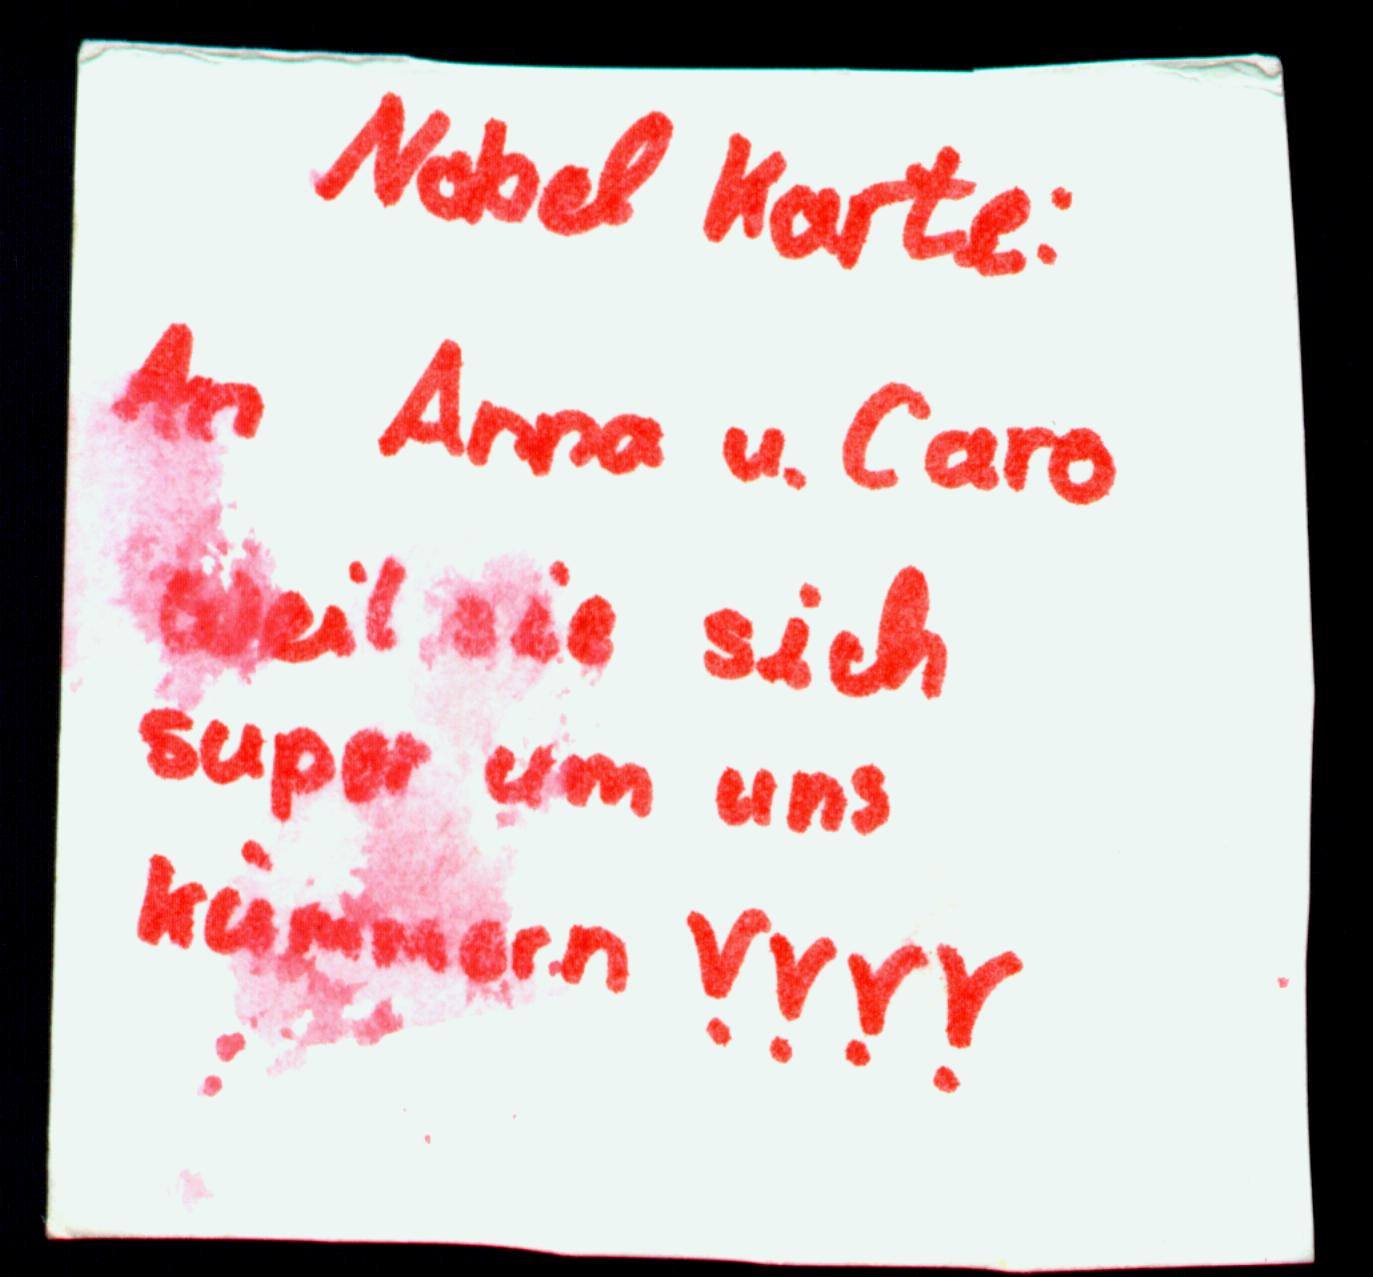 Nobel Karte:
An Anna u. Caro
weil sie sich
super um uns
kümmern !!!!